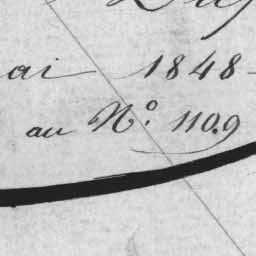 ai 1848
au N.º 1109